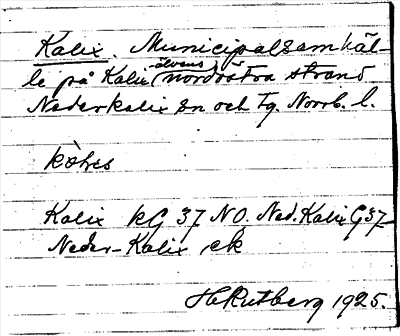 Kalix. Municipalsamhäl-
le på Kalix älvens nordöstra strand
Nederkalix sn och tg. Norrb. l.
kὰlıs
Kalix kG 37 NO. Ned. Kalix G37
Neder-Kalix ek
H. Rutberg 1925.